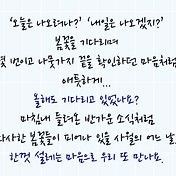 ‘오늘은 나오려나?’ ‘내일은 나오겠지?’
봄꽃을 기다리며
몇 번이고 나뭇가지 끝을 확인하던 마음처럼
애틋하게...
올해도 기다리고 있었나요?
마침내 들려온 반가운 소식처럼
다사한 봄꽃들이 피어나 있을 사월의 어느 날,
한껏 설레는 마음으로 우리 또 만나요.